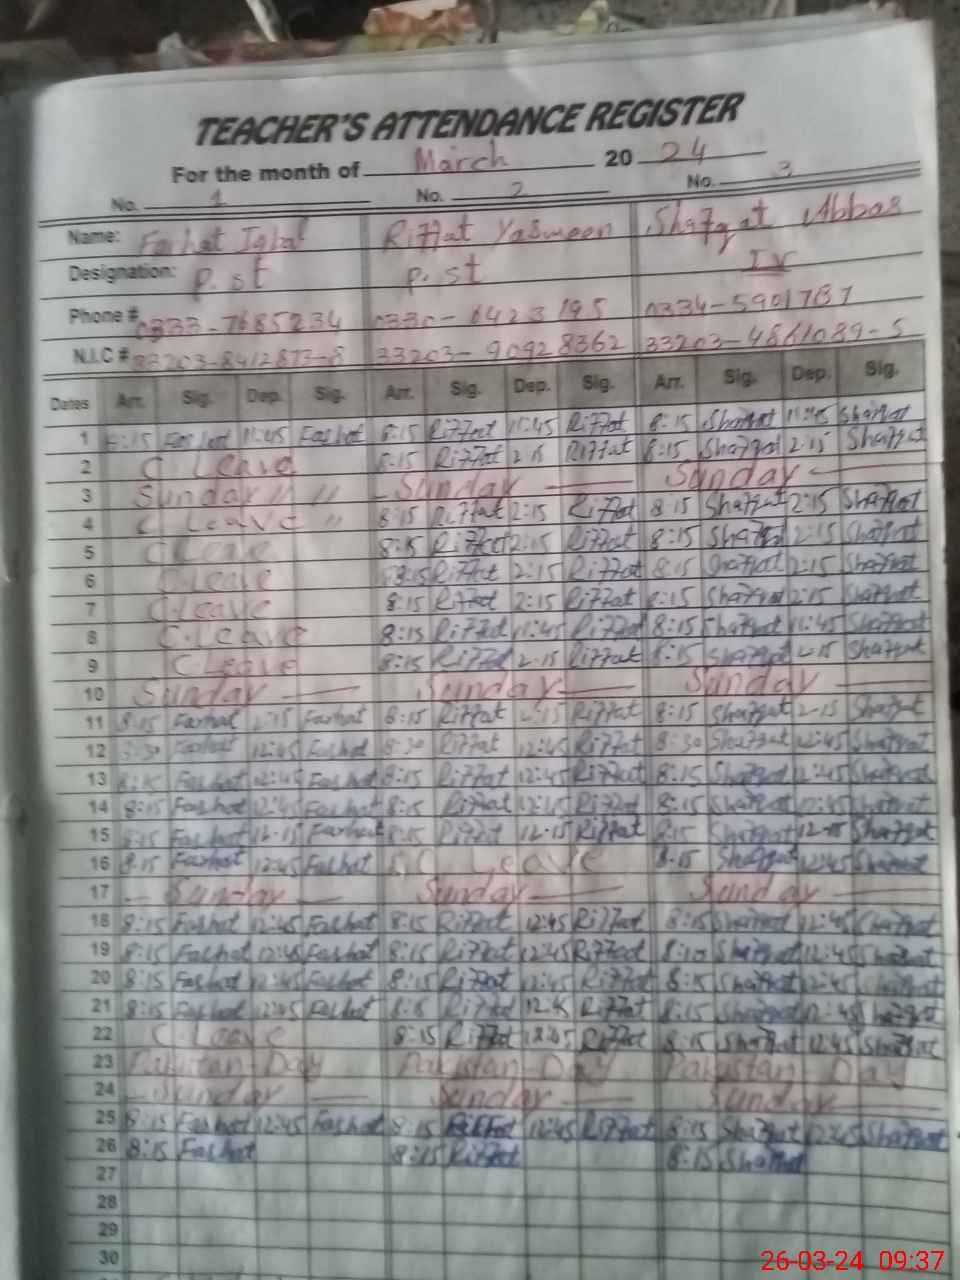 TEACHER'S ATTENDANCE REGISTER
For the month of March 2024
No. 1 No. 2 No. 3
Name: Farhat Iqbal Riffat Yasmeen Shafqat Abbas
Designation: P.st P.st IV
Phone # 0333-7685234 0330-6423195 0334-5901787
N.I.C # 33203-8412873-8 33203-90928362 33203-4861089-5
Dates Arr. Sig. Dep. Sig. Arr. Sig. Dep. Sig. Arr. Sig. Dep. Sig.
1 8:15 Farhat 11:45 Farhat 8:15 Riffat 11:45 Riffat 8:15 Shafqat 11:45 Shafqat
2 C. Leave 8:15 Riffat 2:15 Riffat 8:15 Shafqat 2:15 Shafqat
3 Sunday // // Sunday Sunday
4 C Leave // 8:15 Riffat 2:15 Riffat 8:15 Shafqat 2:15 Shafqat
5 C Leave 8:15 Riffat 2:15 Riffat 8:15 Shafqat 2:15 Shafqat
6 C. Leave 8:15 Riffat 2:15 Riffat 8:15 Shafqat 2:15 Shafqat
7 C. Leave 8:15 Riffat 2:15 Riffat 8:15 Shafqat 2:15 Shafqat
8 C. Leave 8:15 Riffat 11:45 Riffat 8:15 Shafqat 11:45 Shafqat
9 C Leave 8:15 Riffat 2:15 Riffat 8:15 Shafqat 2:15 Shafqat
10 Sunday Sunday Sunday
11 8:15 Farhat 2:15 Farhat 8:15 Riffat 2:15 Riffat 8:15 Shafqat 2:15 Shafqat
12 8:30 Farhat 12:45 Farhat 8:30 Riffat 12:45 Riffat 8:30 Shafqat 12:45 Shafqat
13 8:15 Farhat 12:45 Farhat 8:15 Riffat 12:45 Riffat 8:15 Shafqat 12:45 Shafqat
14 8:15 Farhat 12:45 Farhat 8:15 Riffat Riffat 8:15 Shafqat 12:45 Shafqat
15 8:15 Farhat 12:15 Farhat 8:15 Riffat 12:15 Riffat 8:15 Shafqat Shafqat
16 8:15 Farhat 12:45 Farhat C Leave 8:15 Shafqat 12:45 Shafqat
17 Sunday Sunday Sunday
18 8:15 Farhat 12:45 Farhat 8:15 Riffat 12:45 Riffat 8:15 Shafqat 12:45 Shafqat
19 8:15 Farhat 12:45 Farhat 8:15 Riffat 12:45 Riffat 8:10 Shafqat 12:45 Shafqat
20 8:15 Farhat 12:45 Farhat 8:15 Riffat 12:45 Riffat 8:15 Shafqat 12:45 Shafqat
21 8:15 Farhat 12:45 Farhat 8:15 Riffat 12:45 Riffat 8:15 Shafqat 12:45 Shafqat
22 C. Leave 8:15 Riffat Riffat 8:15 Shafqat 12:45 Shafqat
23 Pakistan-Day Pakistan-Day Pakistan-Day
24 Sunday Sunday Sunday
25 8:15 Farhat 12:45 Farhat 8:15 Riffat 12:45 Riffat 8:15 Shafqat 12:45 Shafqat
26 8:15 Farhat 8:15 Riffat 8:15 Shafqat
27
28
29
30
26-03-24 09:37